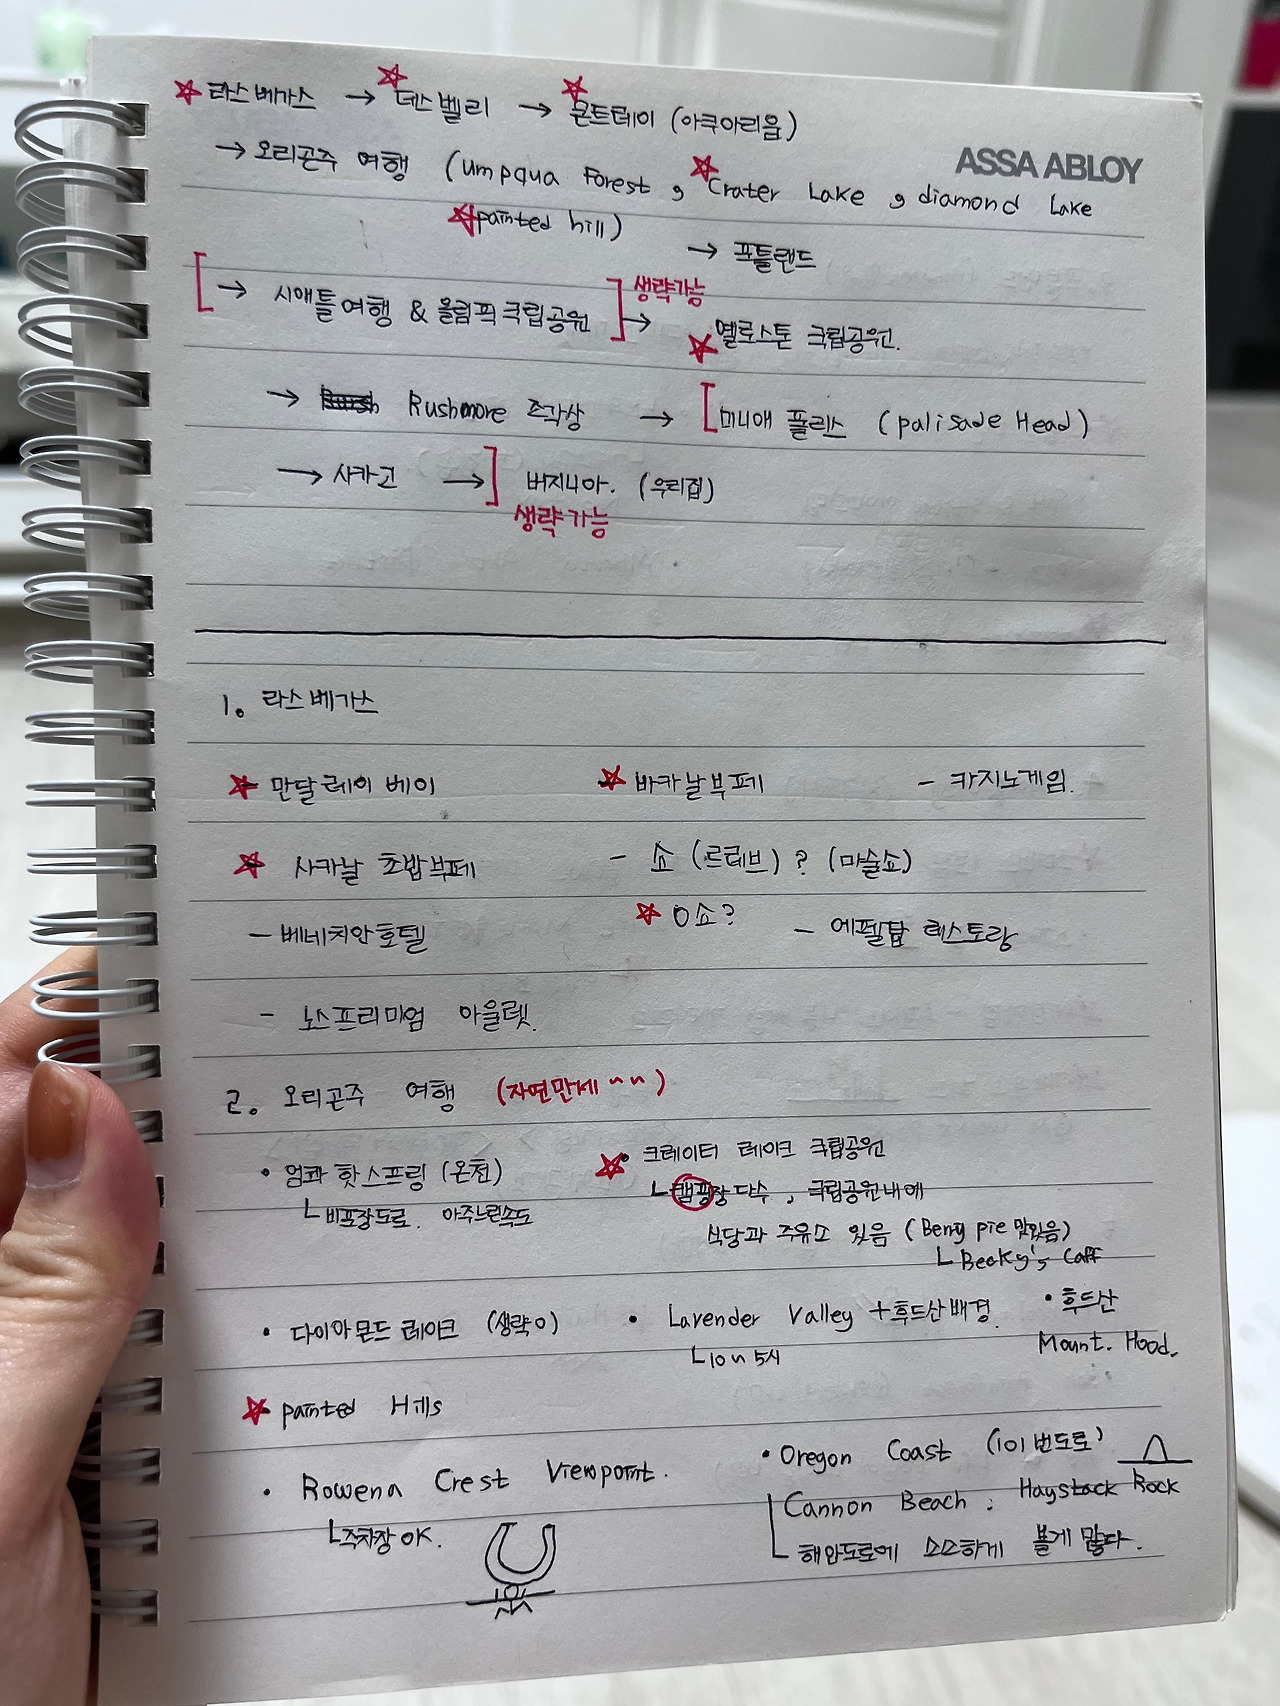 ☆ 라스베가스 → ☆ 데스벨리 → ☆ 몬트레이 (아쿠아리움)
ASSA ABLOY
→ 오리곤주 여행 (umpqua Forest, ☆ Crater Lake, diamond Lake
☆ painted hill)
→ 포틀랜드
[→ 시애틀여행 & 올림픽국립공원] 생략가능
→ ☆ 옐로스톤 국립공원.
→ Rushmore 조각상 → [미니애폴리스 (palisade Head)
→ 시카고 →] 버지니아. (우리집)
생략가능
1. 라스베가스
☆ 만달레이 베이 ☆ 바카날부페 - 카지노게임.
☆ 사카날 초밥부페 - 쇼 (르레브)? (마술쇼)
- 베네치안호텔 ☆ O쇼? - 에펠탑 레스토랑
- 노스프리미엄 아울렛.
2. 오리곤주 여행 (자연만세~~)
• 엄콰 핫스프링 (온천) ☆• 크레이터 레이크 국립공원
└ 비포장도로. 아주느린속도 └ 캠핑장다수, 국립공원내에
식당과 주유소 있음 (Berry pie 맛있음)
└ Becky's Caff
• 다이아몬드 레이크 (생략o) • Lavender Valley +후드산배경. • 후드산
└ 10~5시 Mount. Hood.
☆ painted Hills
• Rowena Crest Viewpoint. • Oregon Coast (101번도로)
└ 주차장OK. Cannon Beach : Haystack Rock
└ 해안도로에 소소하게 볼게 많다.